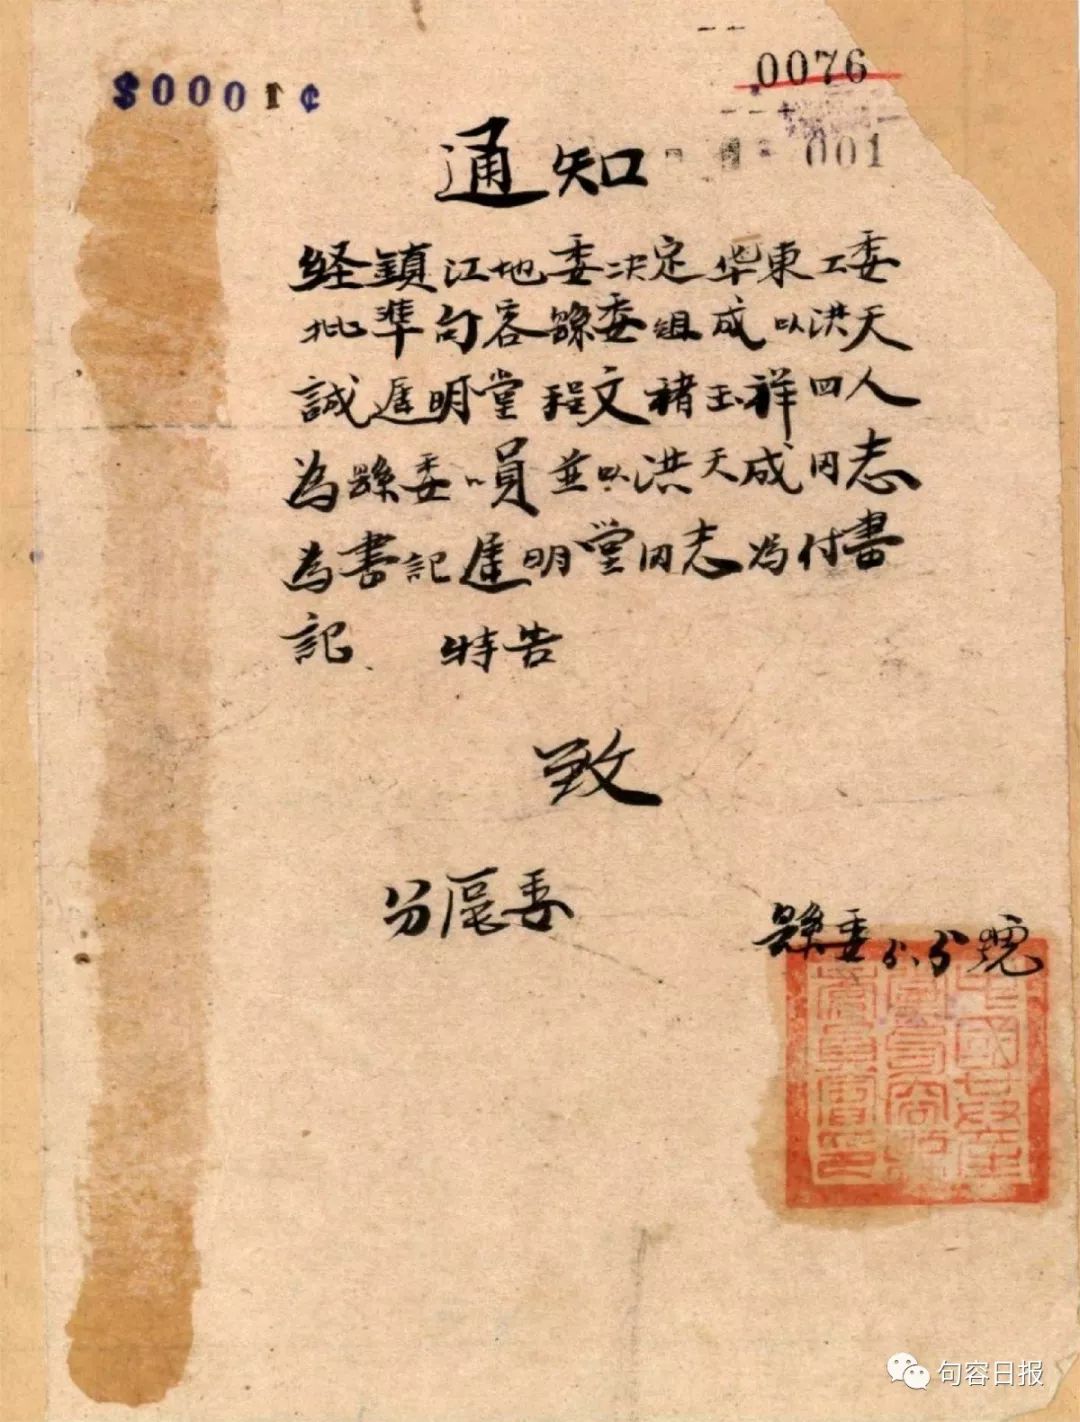 0076
001
通知
经鎮江地委决定华東工委
批準句容縣委組成以洪天
誠 明堂程文褚玉祥四人
為縣委員並以洪天成同志
為書記 明堂同志為付書
記、 特告
致
分區委
縣委 5.5號
中國共産
黨句容縣
委員會印
句容日报